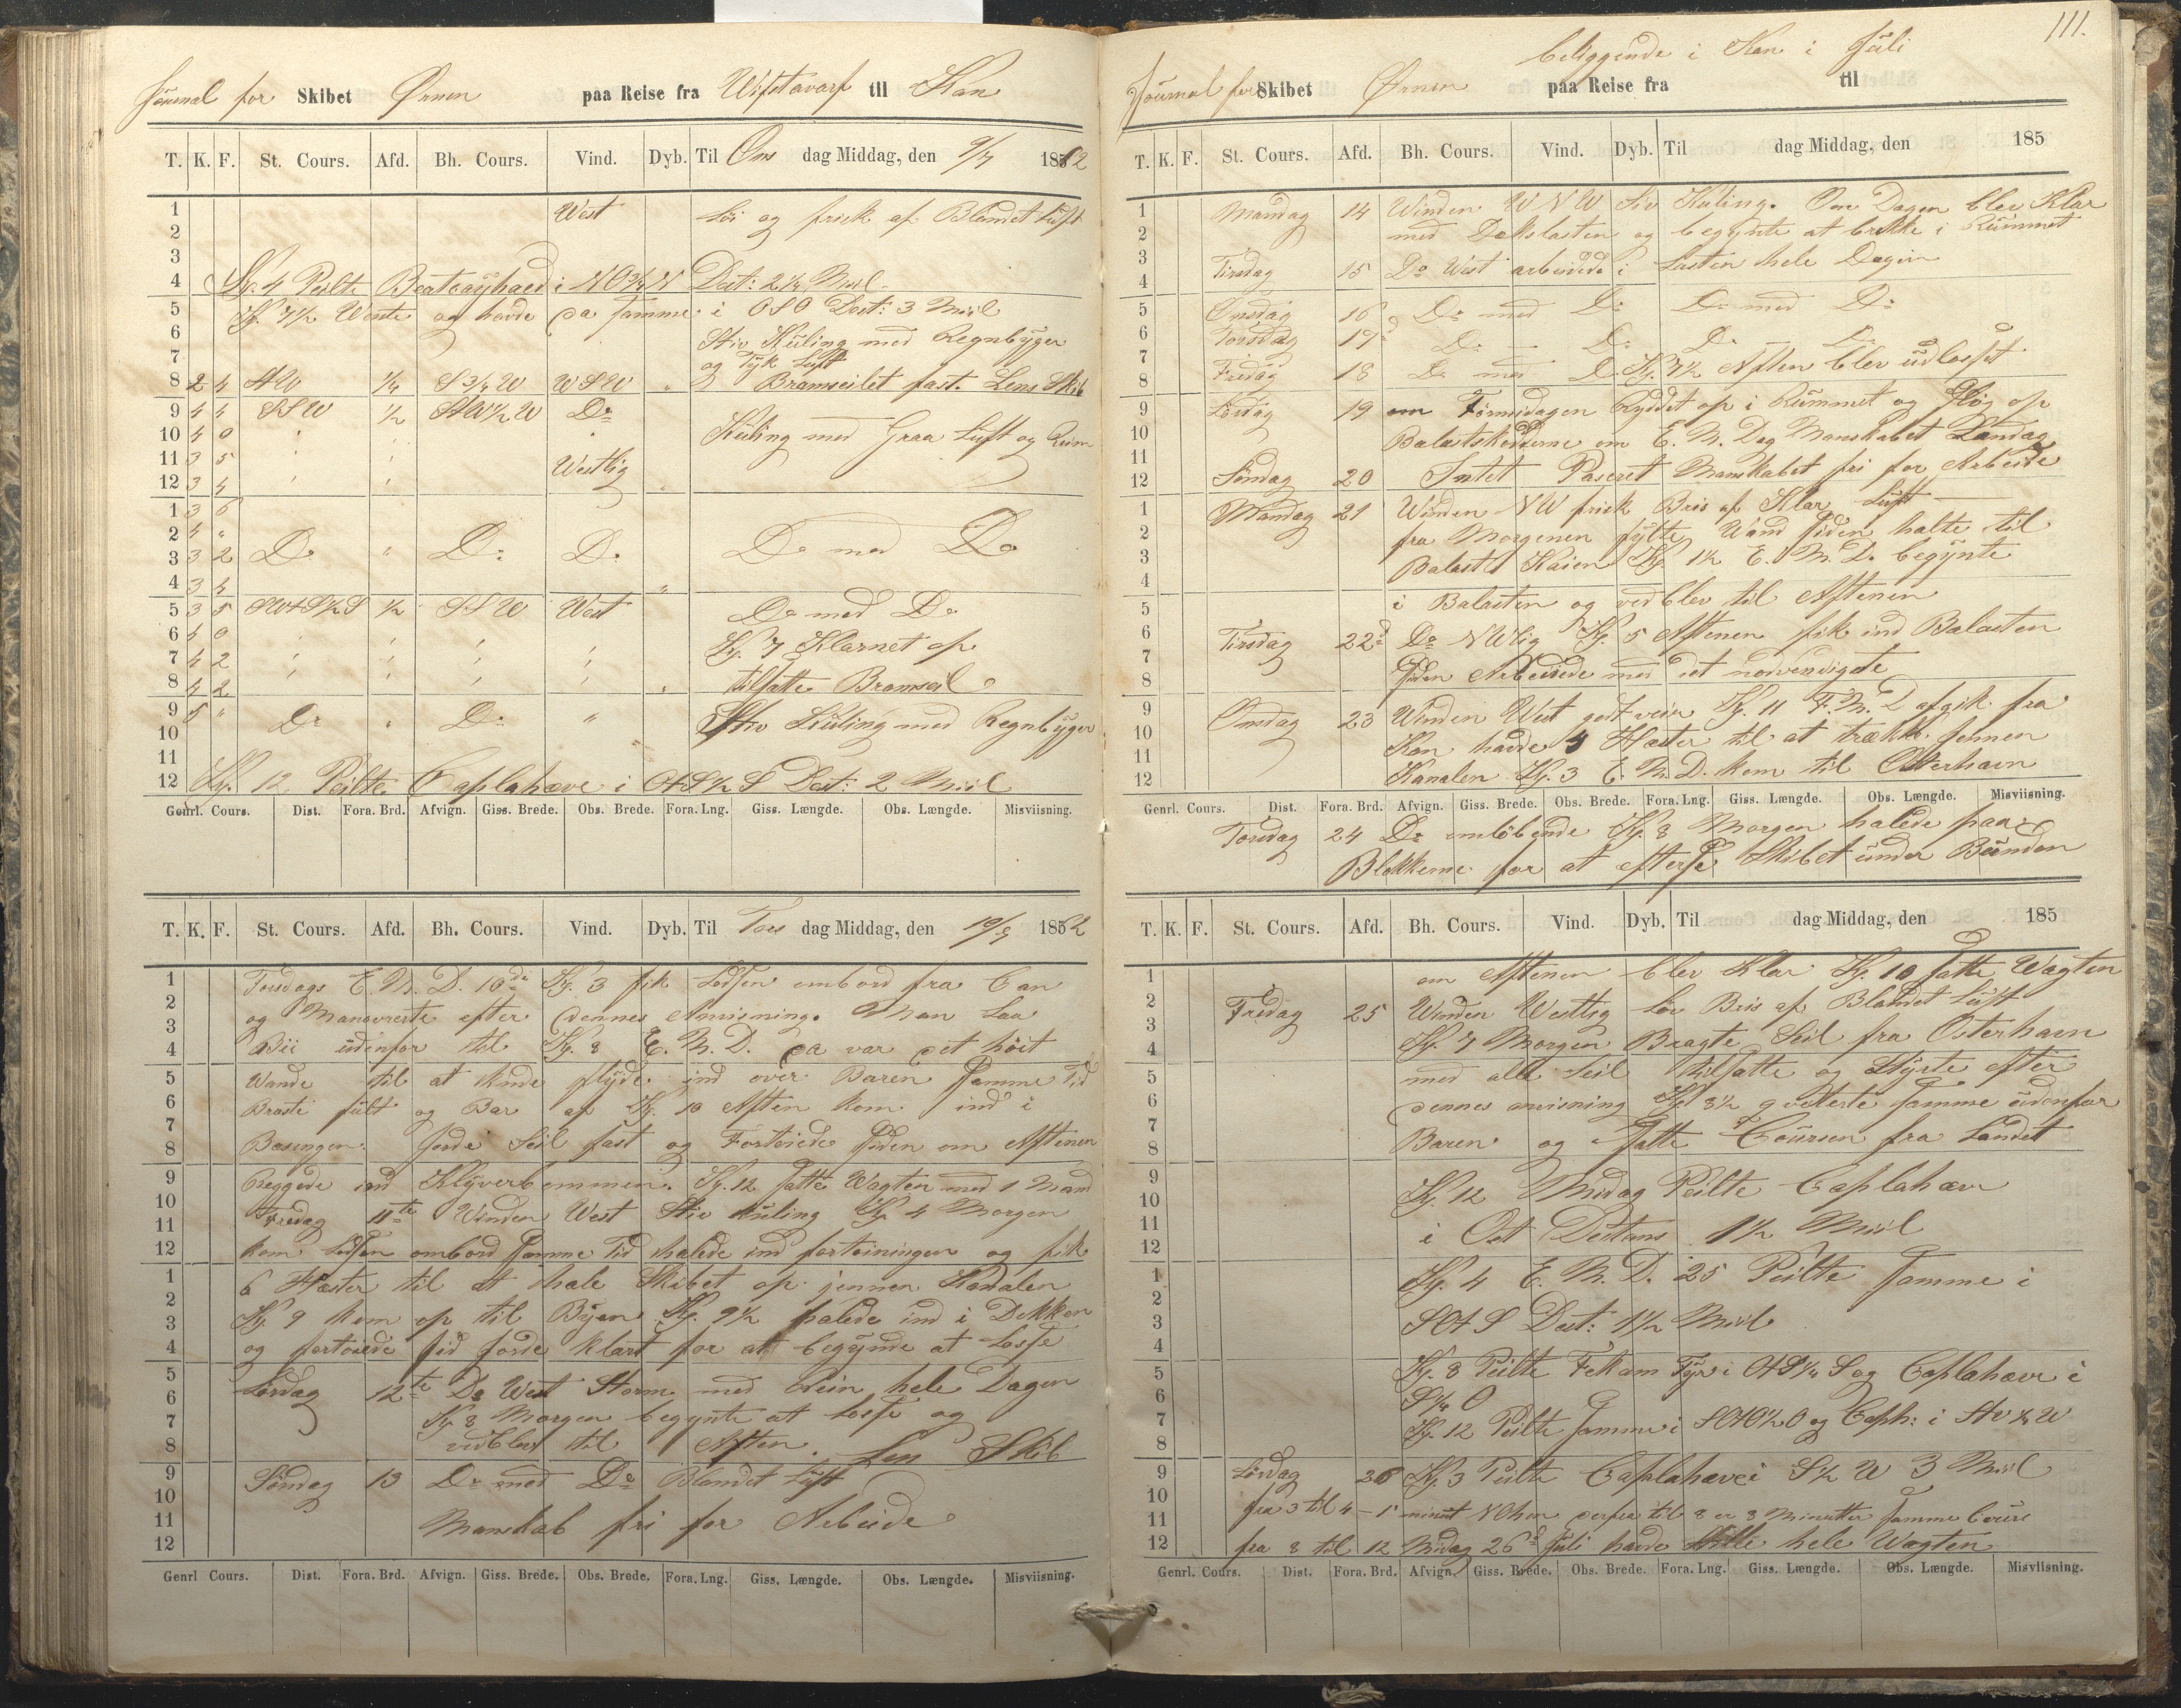 Journal for Skibet Ørnen paa Reise fra Wifstavarf til Kan
T. K. F. St. Cours. Afd. Bh. Cours. Vind. Dyb. Til Ons dag Middag, den 9/7 1862
1 West Löi og frisk af Blandet Luft
2
3
4 Kg. 4 Peilte i NO¾N Dist: 2¼ Miil
5 Kg. 7½ Wente og havde da Samme i OSO Dist: 3 Miil
6 Stiv Küling med Regnbÿger
7 og Tÿk Luft
8 2 4 ¼ S¾W WSW " Bramseilet fast. Lens Skib
9 4 4 SSW ½ Do
10 4 0 Küling med Graa Luft og
11 3 5 Westlig
12 3 4
1 3 6
2 4 "
3 3 2 Do " Do Do Do med Do
4 3 4 "
5 3 5 ½ SSW West Do med Do
6 4 0 Kg. 7 Klarnet op
7 4 2
8 4 2 tilsatte Bramseil
9 5 " Do " Do " Stiv Küling med Regnbÿger
10
11
12 Kg. 12 Peilte Caplahæve i Dist: 2 Miil
Genrl. Cours. Dist. Fora. Brd. Afvign. Giss. Brede. Obs. Brede. Fora. Lng. Giss. Længde. Obs. Længde. Misviisning.
T. K. F. St. Cours. Afd. Bh. Cours. Vind. Dyb. Til Tors dag Middag, den 10/7 1862
1 Torsdags E. M. D. 10de Kg. 3 fik Lodsen ombord fra Can
2 og Manovrerte efter dennes Anvisning. Man Laa
3
4 Bii üdenfor til Kg. 8 E. M. D. da var det höit
5 Wande til at kunde flÿde ind over Baren Samme Tid
6 Braste fult og Bar af Kg. 10 Aften kom ind i
7
8 Basingen Seil fast og Fortoiede Siden om Aftenen
9 ind Klÿverbommen. Kg. 12 satte Wagten med 1 Mand
10 Fredag 11te Winden West Stiv Küling Kg 4 Morgen
11
12 kom Lodsen ombord Samme Tid halede ind fortoiningen og fik
1 6 Hæster til at hale Skibet op jennem Kanalen
2 Kg 9 kom op til Bÿen Kg. 9½ halede ind i Dokken
3
4 og fortoiede klart for at begÿnde at Losse
5 Lørdag 12te Do West Storm med Rein hele Dagen
6 Kg 8 Morgen begynte at Losse og
7
8 vedblev til Aften. Len Skib
9 Söndag 13 Do med Do Blandet Luft
10
11 Manskab fri for Arbeide
12
Genrl Cours. Dist. Fora. Brd. Afvign. Giss. Brede. Obs. Brede. Fora. Lng. Giss. Længde. Obs. Længde. Misviisning.
111.
beliggende i Kan i Juli
Journal for Skibet Ørnen paa Reise fra til
T. K. F. St. Cours. Afd. Bh. Cours. Vind. Dyb. Til dag Middag, den 185
1 Mandag 14 Winden WNW Stiv Kuling. Om Dagen blev Klar
2 med Dekslasten og begynte at brekke i Rümmet
3 Tirsdag 15 Do West arbeidede i Lasten hele Dagen
4
5 Onsdag 16 Do med Do Do med Do
6 Torsdag 17 Do — Do Do — Do
7 Fredag 18 Do med Do Kg. 7½ Aften blev üdlosset
8
9 Lördag 19 om Formidagen Ryddet op i Rümmet og slög op
10 Balastskodderne om E. M. Dag Manskabet Landag
11
12 Söndag 20 Intet Paseret Manskabet fri for Arbeide
1 Mandag 21 Winden NW frisk Bris af Klar Lüft
2 fra Morgenen fÿlte Wand siden halte til
3 Balast Kaien Kg 1½ E. M. D. begÿnte
4
5 i Balasten og vedblev til Aftenen
6 Tirsdag 22d Do NWlig Kg. 5 Aftenen fik ind Balasten
7
8 Siden Arbeidede med det nodvendigste
9 Onsdag 23 Winden West godt veir Kg. 11 F. M. D afgik fra
10 Kan havde 4 Hæster til at trække jennem
11
12 Kanalen Kg. 3 E. M. D. kom til Osterhavn
Genrl. Cours. Dist. Fora. Brd. Afvign. Giss. Brede. Obs. Brede. Fora. Lng. Giss. Længde. Obs. Længde. Misviisning.
Torsdag 24 Do omlöbende Kg. 8 Morgen halede paa
Blokkerne for at efterse Skibet ünder Bünden
T. K. F. St. Cours. Afd. Bh. Cours. Vind. Dyb. Til dag Middag, den 185
1 om Aftenen blev Klar Kg. 10 satte Wagten
2 Fredag 25 Winden Westlig Löi Bris af Blandet Lüft
3
4 Kg. 7 Morgen Bragte Seil fra Osterhavn
5 med alle Seil tilsatte og Stÿrte efter
6 dennes anvisning Kg 8½ qvitterte Samme üdenfor
7
8 Baren og Satte Coursen fra Landet
9 Kg. 12 Midag Peilte Caplahæve
10
11 i Ost Distans 1½ Miil
12
1 Kg. 4 E. M. D. 25 Peilte Samme i
2
3 Dist: 1½ Miil
4
5 Kg. 8 Peilte Fekam Fÿr i og Caplahæve i
6 S¼O
7 Kg. 12 Peilte Samme i og Caph: i
8
9 Lördag 26 Kg. 3 Peilte Caplahæve i S½W 3 Miil
10 fra 3 til 4 – 1 minut derfra til 8 er 8 Minutter Samme Cours
11
12 fra 8 til 12 Midag 26d Juli havde Stille hele Wagten
Genrl. Cours. Dist. Fora. Brd. Afvign. Giss. Brede. Obs. Brede. Fora. Lng. Giss. Længde. Obs. Længde. Misviisning.